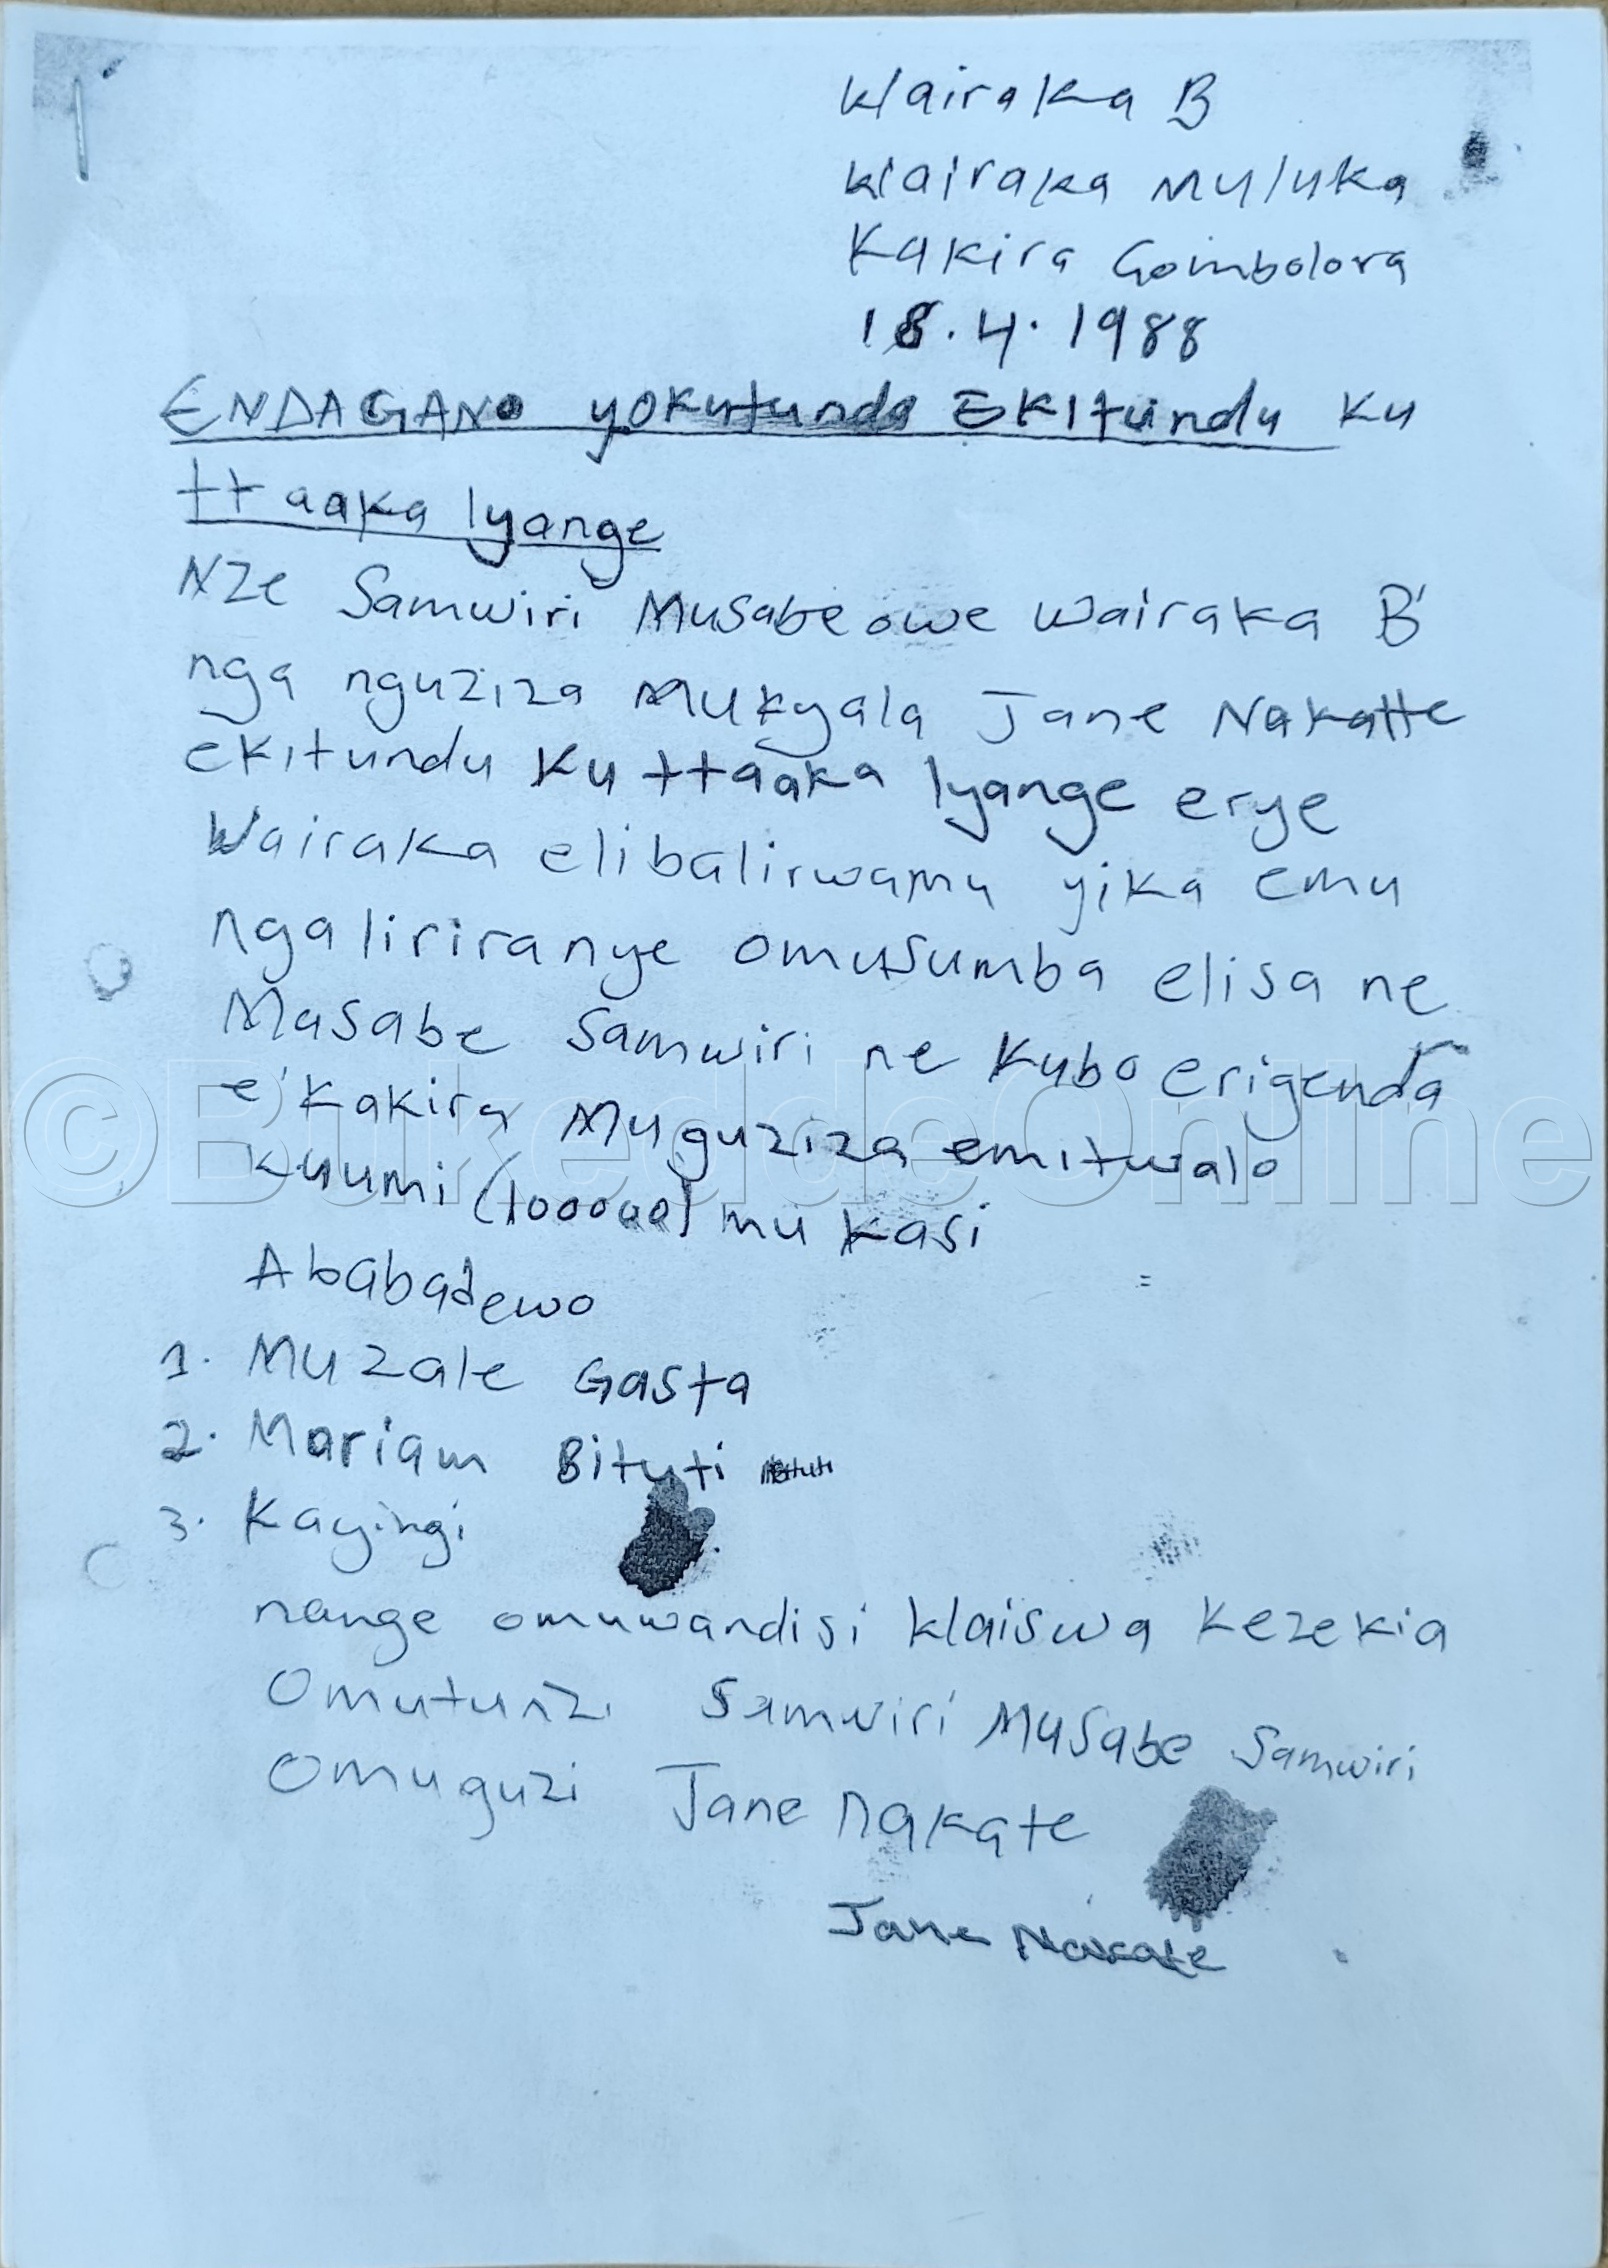 Wairaka B
Wairaka Muluka
Kakira Gombolora
18.4.1988
ENDAGANO yokutunda EKItundu Ku
ttaaka lyange
Nze Samwiri Musabe owe Wairaka B'
nga nguziza Mukyala Jane Nakatte
ekitundu Ku ttaaka lyange erye
Wairaka elibalirwamu yika emu
ngaliriranye omusumba elisa ne
Masabe Samwiri ne Kubo erigenda
e'Kakira Muguziza emitwalo
kuumi (100000) mu kasi
Ababadewo
1. Muzale Gasta
2. Mariam Bituti
3. Kayingi
nange omuwandisi Waiswa Kezekia
Omutunzi Samwiri Musabe Samwiri
Omuguzi Jane Nakate
Jane Nakate
©BukeddeOnline